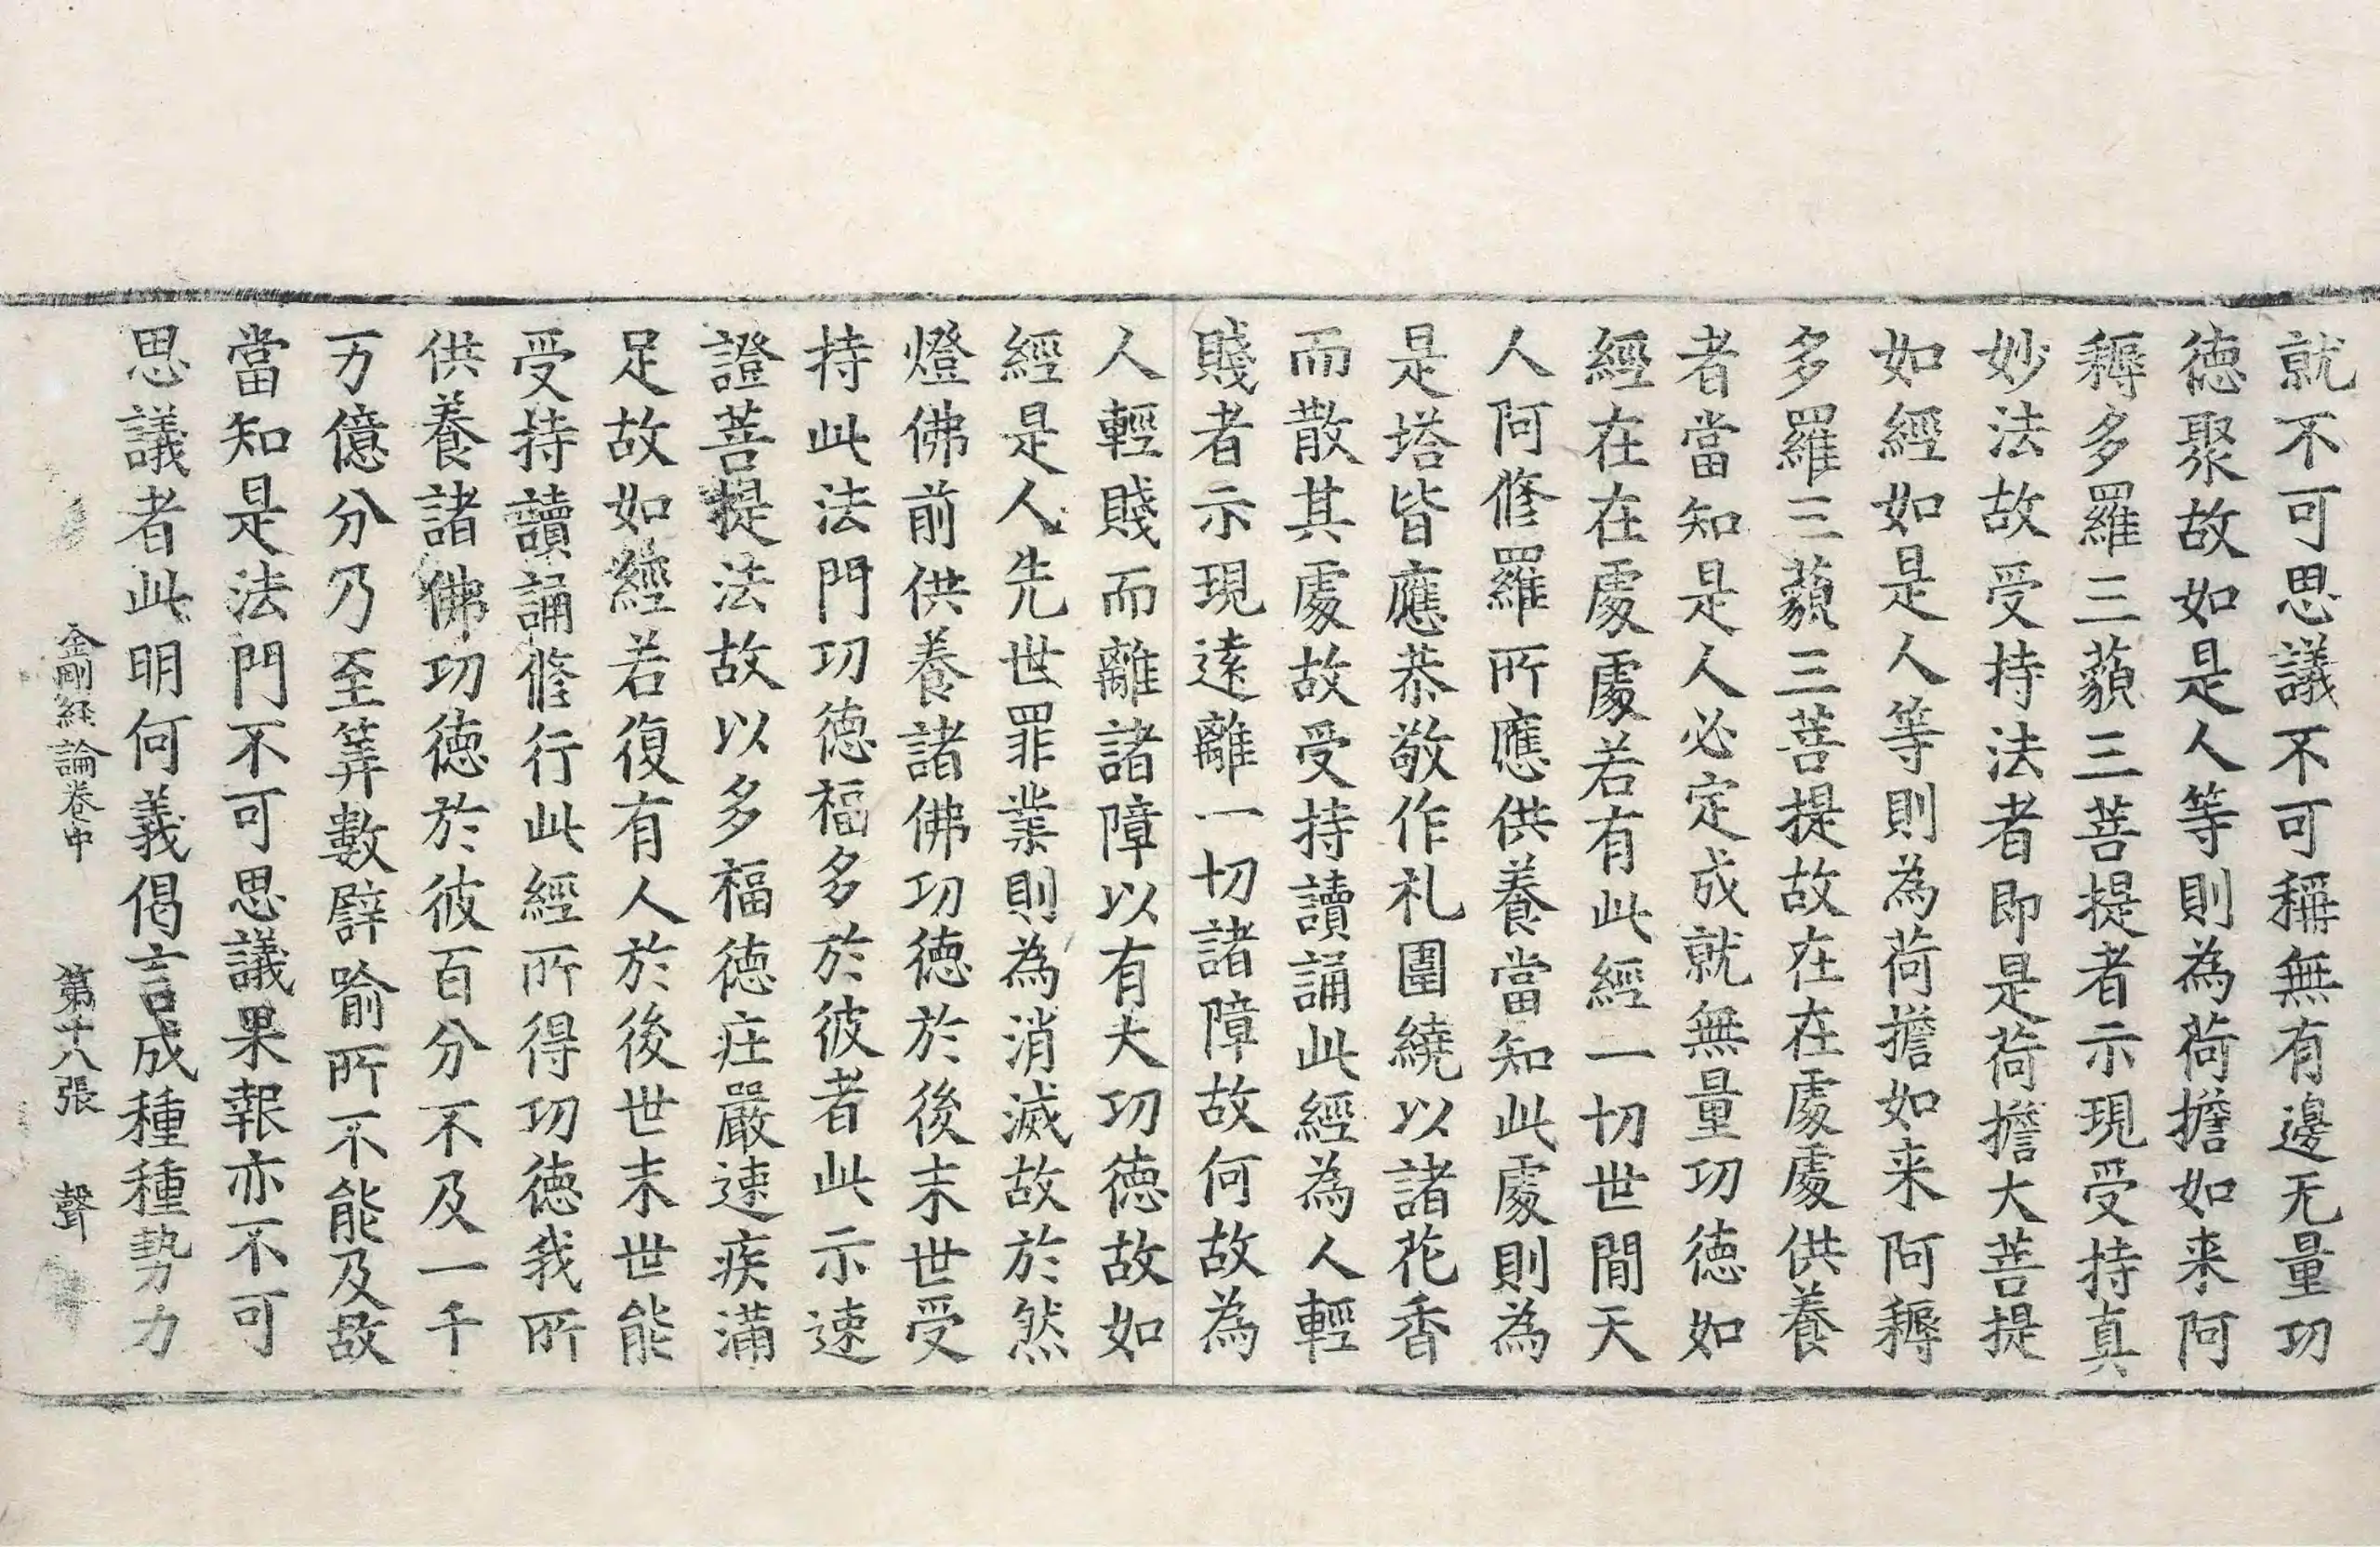 就不可思議不可稱無有邊无量功
德聚故如是人等則為荷擔如来阿
耨多羅三藐三菩提者示現受持真
妙法故受持法者即是荷擔大菩提
如經如是人等則為荷擔如来阿耨
多羅三藐三菩提故在在處處供養
者當知是人必定成就無量功德如
經在在處處若有此經一切世間天
人阿修羅所應供養當知此處則為
是塔皆應恭敬作礼圍繞以諸花香
而散其處故受持讀誦此經為人輕
賤者示現遠離一切諸障故何故為
人輕賤而離諸障以有大功德故如
經是人先世罪業則為消滅故於然
燈佛前供養諸佛功德於後末世受
持此法門功德福多於彼者此示速
證菩提法故以多福德庄嚴速疾滿
足故如經若復有人於後世末世能
受持讀誦修行此經所得功德我所
供養諸佛功德於彼百分不及一千
万億分乃至筭數譬喻所不能及故
當知是法門不可思議果報亦不可
思議者此明何義偈言成種種勢力
金剛経論卷中 第十八張 聲